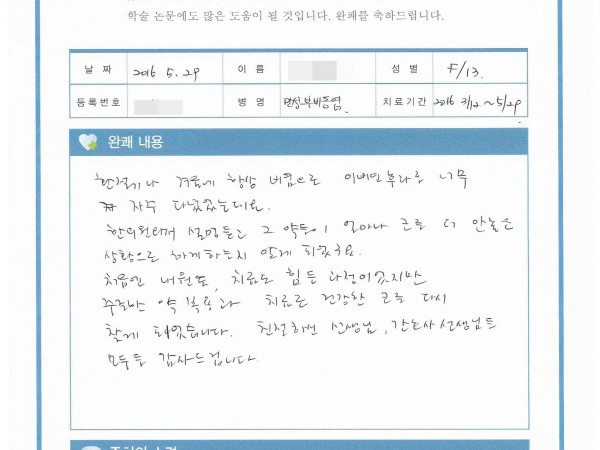 학술 논문에도 많은 도움이 될 것입니다. 완쾌를 축하드립니다.
날 짜 2016 5. 29 이 름 성 별 F/13.
등록번호 병 명 만성부비동염 치료기간 2016 3/12 ~ 5/29
완쾌 내용
환절기나 겨울에 항상 비염으로 이비인후과를 너무
자주 다녔었는데요.
한의원에서 설명듣고 그 약들이 얼마나 코를 더 안좋은
상황으로 하게하는지 알게 되었구요.
처음엔 내원도, 치료도 힘든 과정이었지만
약 복용과 치료로 건강한 코를 다시
찾게 되었습니다. 친절하신 선생님, 간호사선생님들
모두들 감사드립니다.